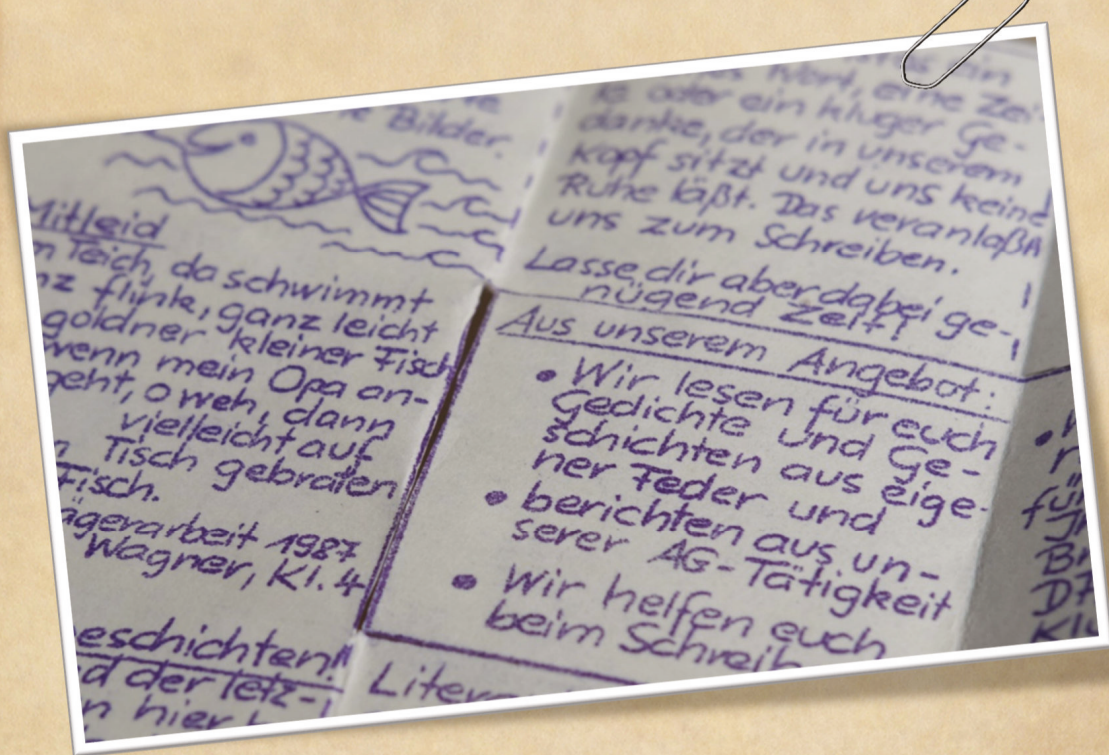 Bilder.
Mitleid
Teich, da schwimmt
flink, ganz leicht
goldner kleiner Fisch
wenn mein Opa an-
geht, o weh, dann
vielleicht auf
Tisch gebraten
Fisch.
1987
Wagner, Kl. 4
der letz-
hier
ein
Wort, eine Zei-
le oder ein kluger Ge-
danke, der in unserem
Kopf sitzt und uns keine
Ruhe läßt. Das veranlaßt
uns zum Schreiben.
Lasse dir aber dabei ge-
nügend Zeit!
Aus unserem Angebot:
• Wir lesen für euch
Gedichte und Ge-
schichten aus eige-
ner Feder und
• berichten aus un-
serer AG-Tätigkeit
• Wir helfen euch
beim